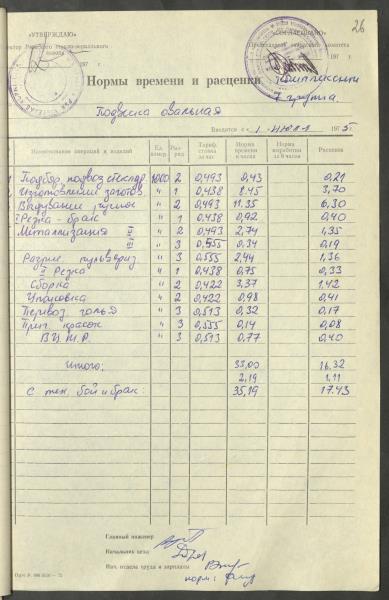 26
«УТВЕРЖДАЮ» «СОГЛАСОВАНО»
завода
197 г. 197 г.
Нормы времени и расценки
7 группа.
Подвеска овальная
Вводятся с « 1 » июля 1975 г.
Наименование операций и изделий Ед. измер. Раз-ряд Тариф. ставка за час Норма времени в часах Норма выработки за 8 часов Расценка
Подбор, подвоз стеклар 1000 2 0,493 0,43 0,21
Изготовление заготов. " 1 0,438 8.45 3,70
Выдувание " 2 0,493 11.35 6,30
I Резка - брак " 1 0,438 0.92 0,40
Металлизация IV " 2 0,493 2,74 1,35
III " 3 0,555 0.34 0,19
Разрис. пульвериз " 3 0.555 2,44 1,36
II Резка " 1 0,438 0,75 0,33
Сборка " 2 0,422 3,37 1.42
Упаковка " 2 0,422 0,98 0,41
Перевоз. " 3 0,513 0,32 0,17
Приг. красок " 3 0,555 0,14 0,08
В.Ц.Т.Р. " 3 0,513 0.77 0,40
Итого: 33,00 16.32
2,19 1,11
С тех. бой и брак: 35,19 17.43
Главный инженер
Начальник цеха
Нач. отдела труда и зарплаты
норм: